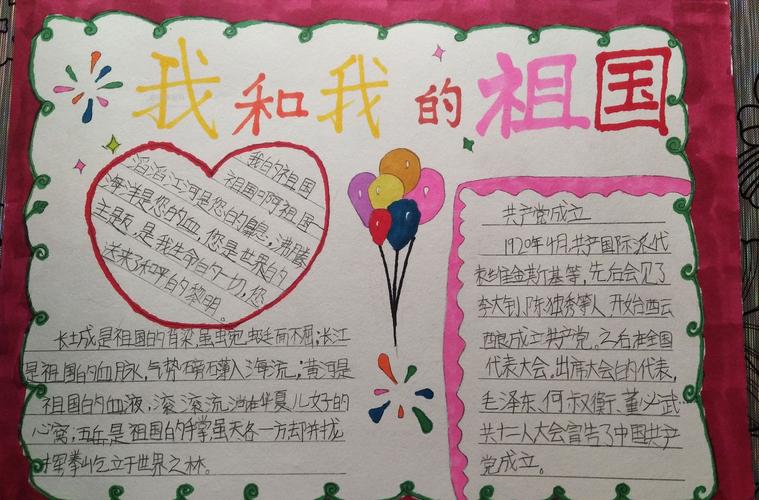 我和我的祖国
我的祖国
祖国啊祖国
滔滔江河是您的气息,沸腾
海洋是您的血,您是世界的
主题,是我生命的一切,您
送来了和平的黎明。
长城是祖国的脊梁,虽蜿蜒而不屈;长江
是祖国的血脉,气势磅礴入海流;黄河是
祖国的血液,滚滚流淌在华夏儿女的
心窝;五岳是祖国的手掌虽天各一方却并拢
挥拳屹立于世界之林。
共产党成立
1920年4月,共产国际派代
表维金斯基等,先后会见了
李大钊,陈独秀等人开始
成立共产党。之后在全国
代表大会,出席大会的代表,
毛泽东、何叔衡、董必武…
共十二人大会宣告了中国共产
党成立。